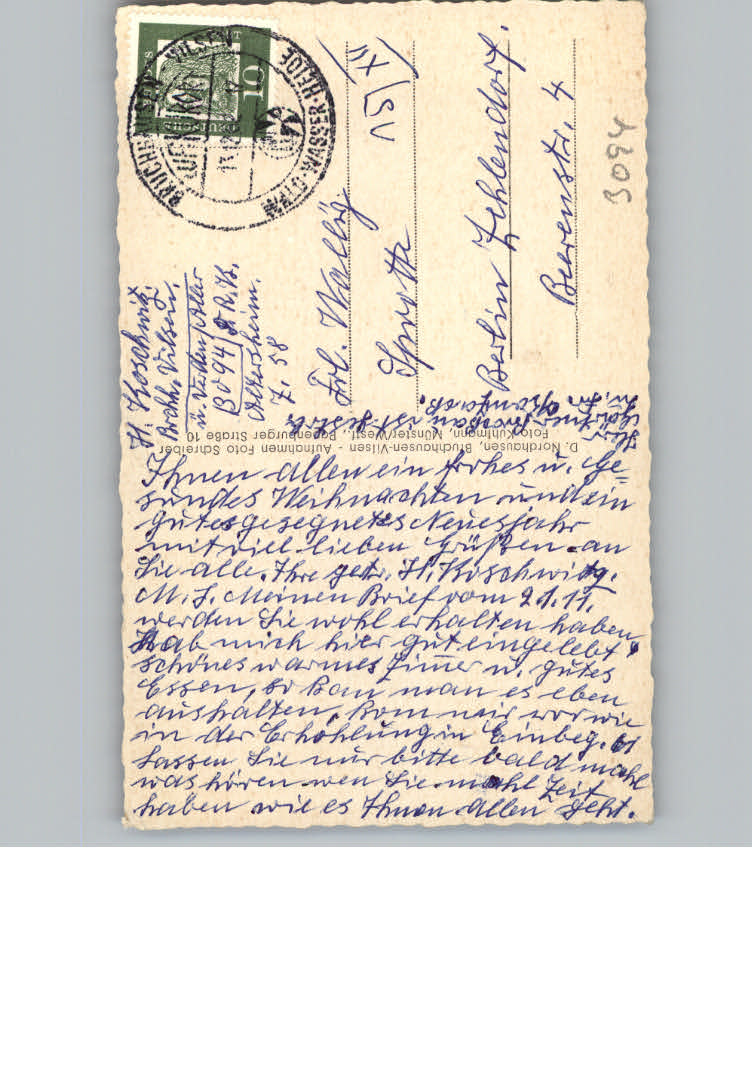 BRUCHHAUSEN-VILSEN
LUFTKURORT
WALD·WASSER·HEIDE
10
H. Koschwitz.
Brchh. Vilsen,
ü. Verden/Aller
Altersheim.
Z. 58
15/XII
Frl. Wallig
Berlin Zehlendorf.
Beerenstr. 4
3094
D. Nordhausen, Bruchhausen-Vilsen - Aufnahmen Foto Schreiber
Foto Kuhlmann, Münster/Westf., Bopenburger Straße 10
Ihnen allen ein frohes u. Ge=
sundes Weihnachten und ein
gutes gesegnetes Neuesjahr
mit viel lieben Grüßen an
Sie alle. Ihre getr. H. Koschwitz.
M. S. Meinen Brief vom 21.11.
werden Sie wohl erhalten haben
Hab mich hier gut eingelebt
schönes warmes Zimer u. gutes
Essen, so kan man es eben
aushalten, kom mir vor wie
in der Erhohlung in Einbeg. 61
Lassen Sie nur bitte bald mahl
was hören wen Sie mahl Zeit
haben wie es Ihnen allen geht.